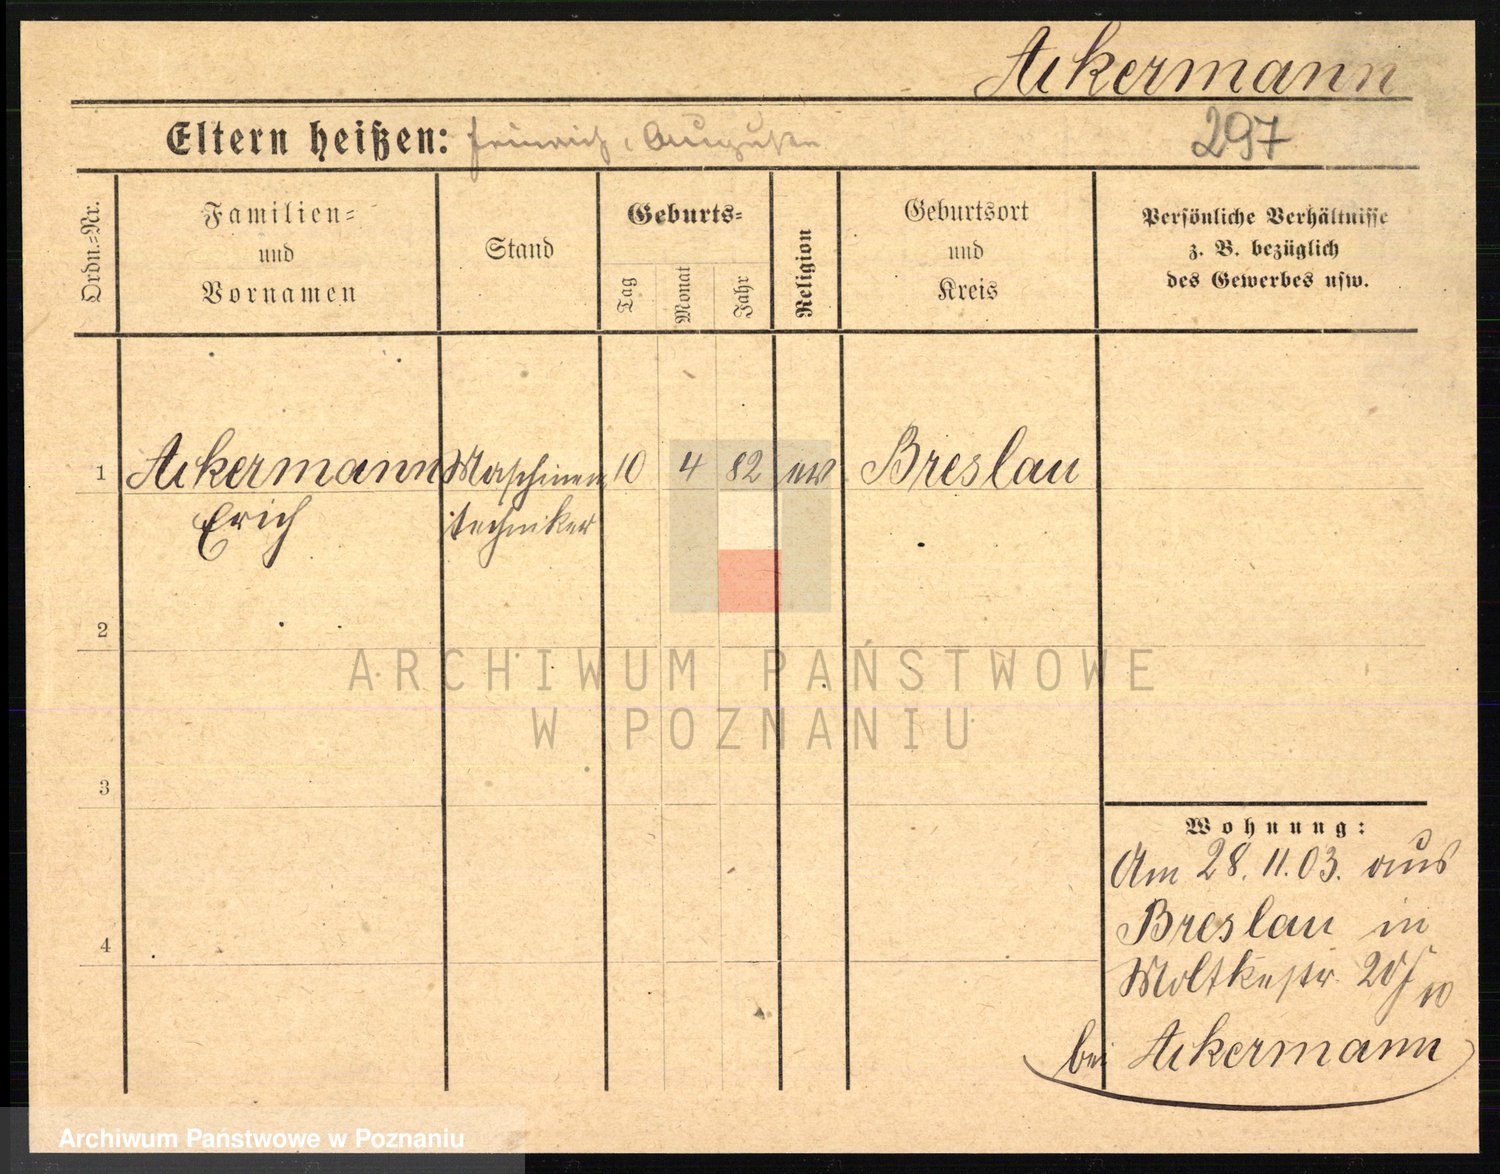 Ackermann
Eltern heißen: Heinrich, Auguste
297
Ordn.=Nr.
Familien=
und
Vornamen
Stand
Geburts=
Tag
Monat
Jahr
Religion
Geburtsort
und
Kreis
Persönliche Verhältnisse
z. B. bezüglich
des Gewerbes usw.
1 Ackermann Maschinen 10 4 82 ev Breslau
Erich techniker
2
ARCHIWUM PAŃSTWOWE
W POZNANIU
3
Wohnung:
Am 28.11.03. aus
Breslau in
4
Moltkestr. 20
bei Ackermann
Archiwum Państwowe w Poznaniu